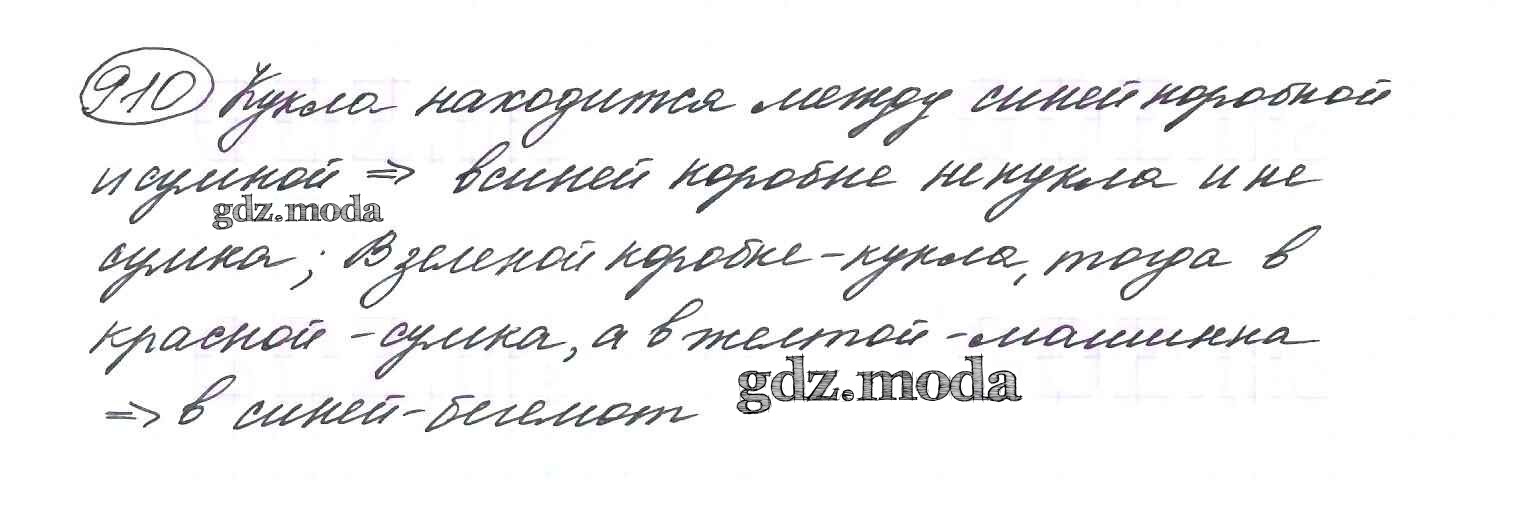 910 Кукла находится между синей коробкой
и сумкой => в синей коробке не кукла и не
gdz.moda
сумка; В зеленой коробке - кукла, тогда в
красной - сумка, а в желтой - машинка
gdz.moda
=> в синей - бегемот